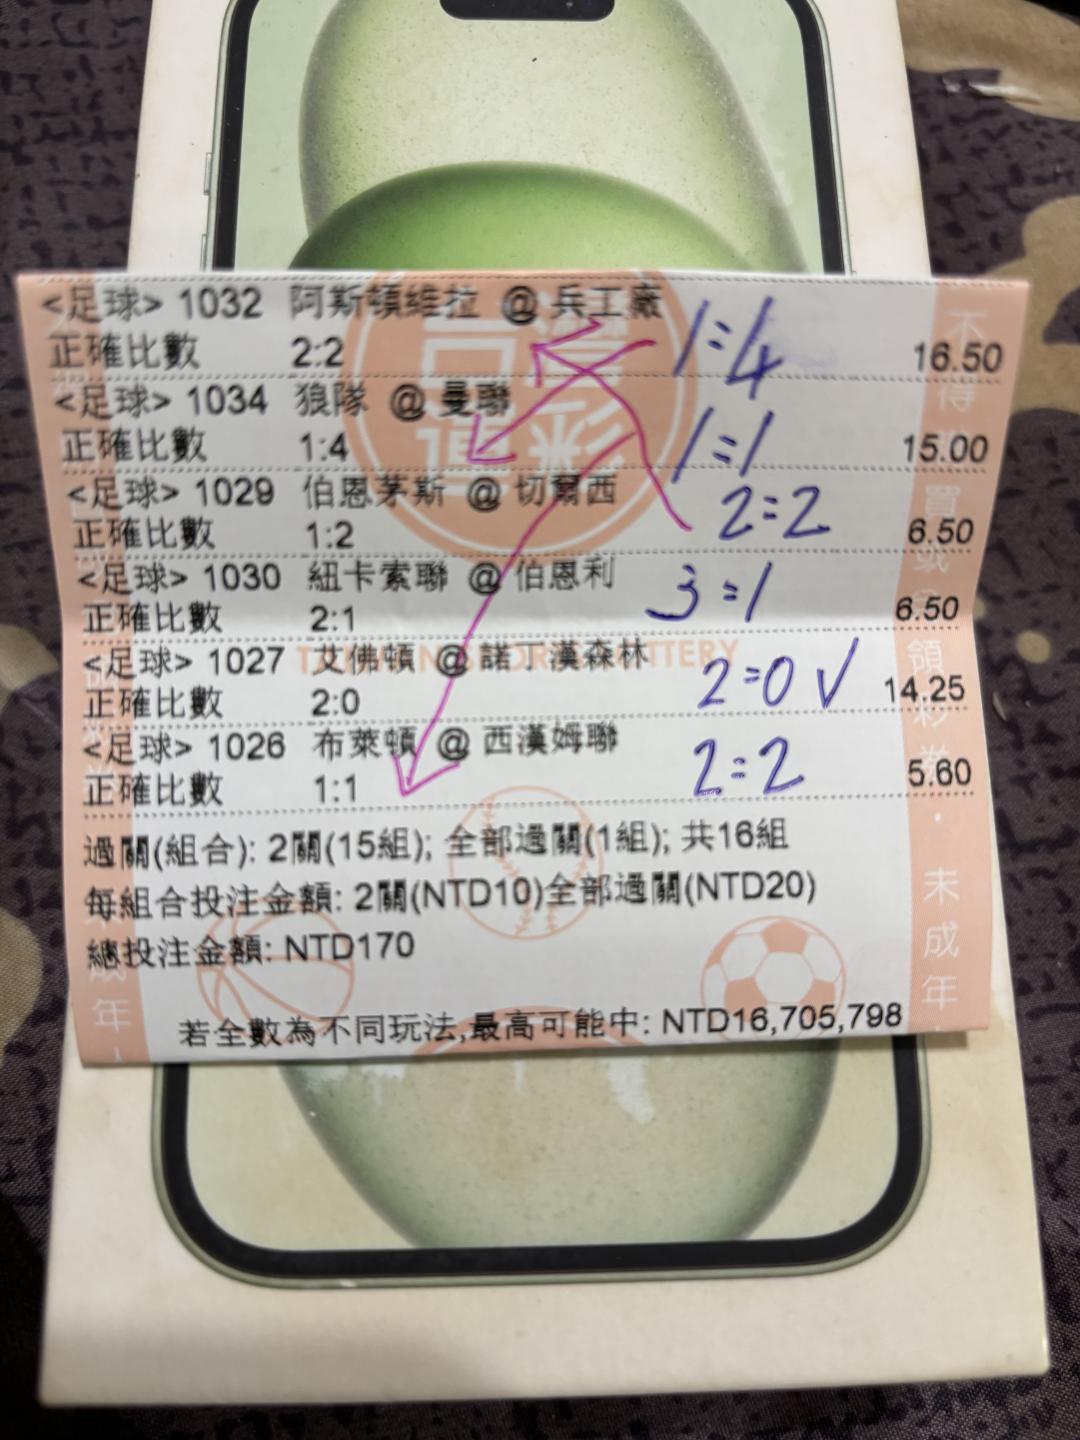 <足球> 1032 阿斯頓維拉 @ 兵工廠
正確比數 2:2 1:4 16.50
<足球> 1034 狼隊 @ 曼聯
正確比數 1:4 1:1 15.00
<足球> 1029 伯恩茅斯 @ 切爾西
正確比數 1:2 2:2 6.50
<足球> 1030 紐卡索聯 @ 伯恩利
正確比數 2:1 3:1 6.50
<足球> 1027 艾佛頓 @ 諾丁漢森林
正確比數 2:0 2:0 √ 14.25
<足球> 1026 布萊頓 @ 西漢姆聯
正確比數 1:1 2:2 5.60
過關(組合): 2關(15組); 全部過關(1組); 共16組
每組合投注金額: 2關(NTD10)全部過關(NTD20)
總投注金額: NTD170
若全數為不同玩法,最高可能中: NTD16,705,798
台灣
運彩
未成年